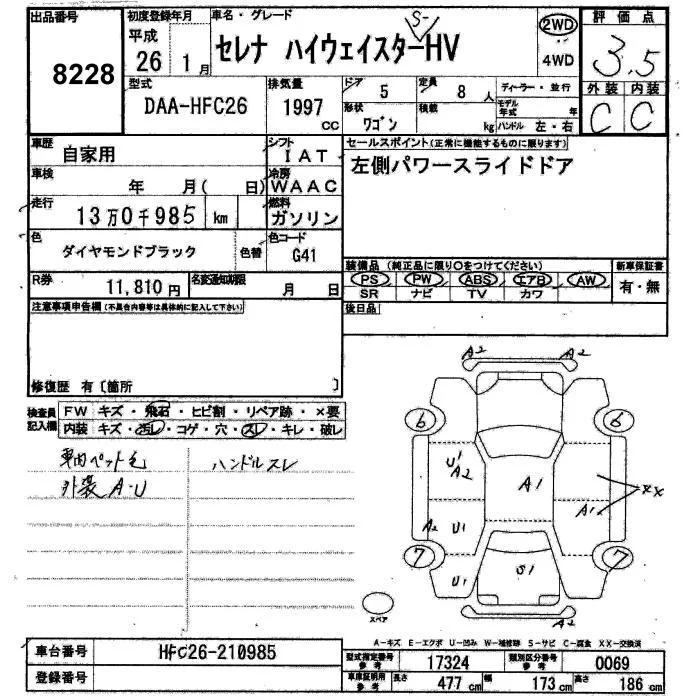 出品番号
8228
初度登録年月
平成
26 1月
車名・グレード
セレナ ハイウェイスターS-HV
2WD
4WD
評価点
3.5
外装 内装
C C
型式
DAA-HFC26
排気量
1997 cc
ドア
5
定員
8 人
形状
ワゴン
積載
kg
ディーラー・並行
モデル年式 年
ハンドル 左・右
車歴
自家用
シフト
IAT
車検
年 月( 日)
冷房
WAAC
走行
13万0千985 km
燃料
ガソリン
色
ダイヤモンドブラック
色替
色コード
G41
R券
11,810円
名変通知期限
月 日
セールスポイント(正常に機能するものに限ります)
左側パワースライドドア
装備品 (純正品に限り○をつけてください)
PS PW ABS エアB AW
SR ナビ TV カワ
新車保証書
有・無
後日品
注意事項申告欄(不具合内容等は具体的に記入して下さい)
修復歴 有〔箇所 〕
検査員記入欄
FW キズ・飛石・ヒビ割・リペア跡・×要
内装 キズ・汚レ・コゲ・穴・スレ・キレ・破レ
車内ペット毛 ハンドルスレ
外装 A-U
A2 A2
6 6
U1 A2
A1
XX
A2 U1 A1
7 7
U1 S1
A2
スペア
A-キズ E-エクボ U-凹み W-補修跡 S-サビ C-腐食 XX-交換済
車台番号
HFC26-210985
登録番号
型式指定番号 参考
17324
類別区分番号 参考
0069
車庫証明用 参考
長さ 477 cm 幅 173 cm 高さ 186 cm